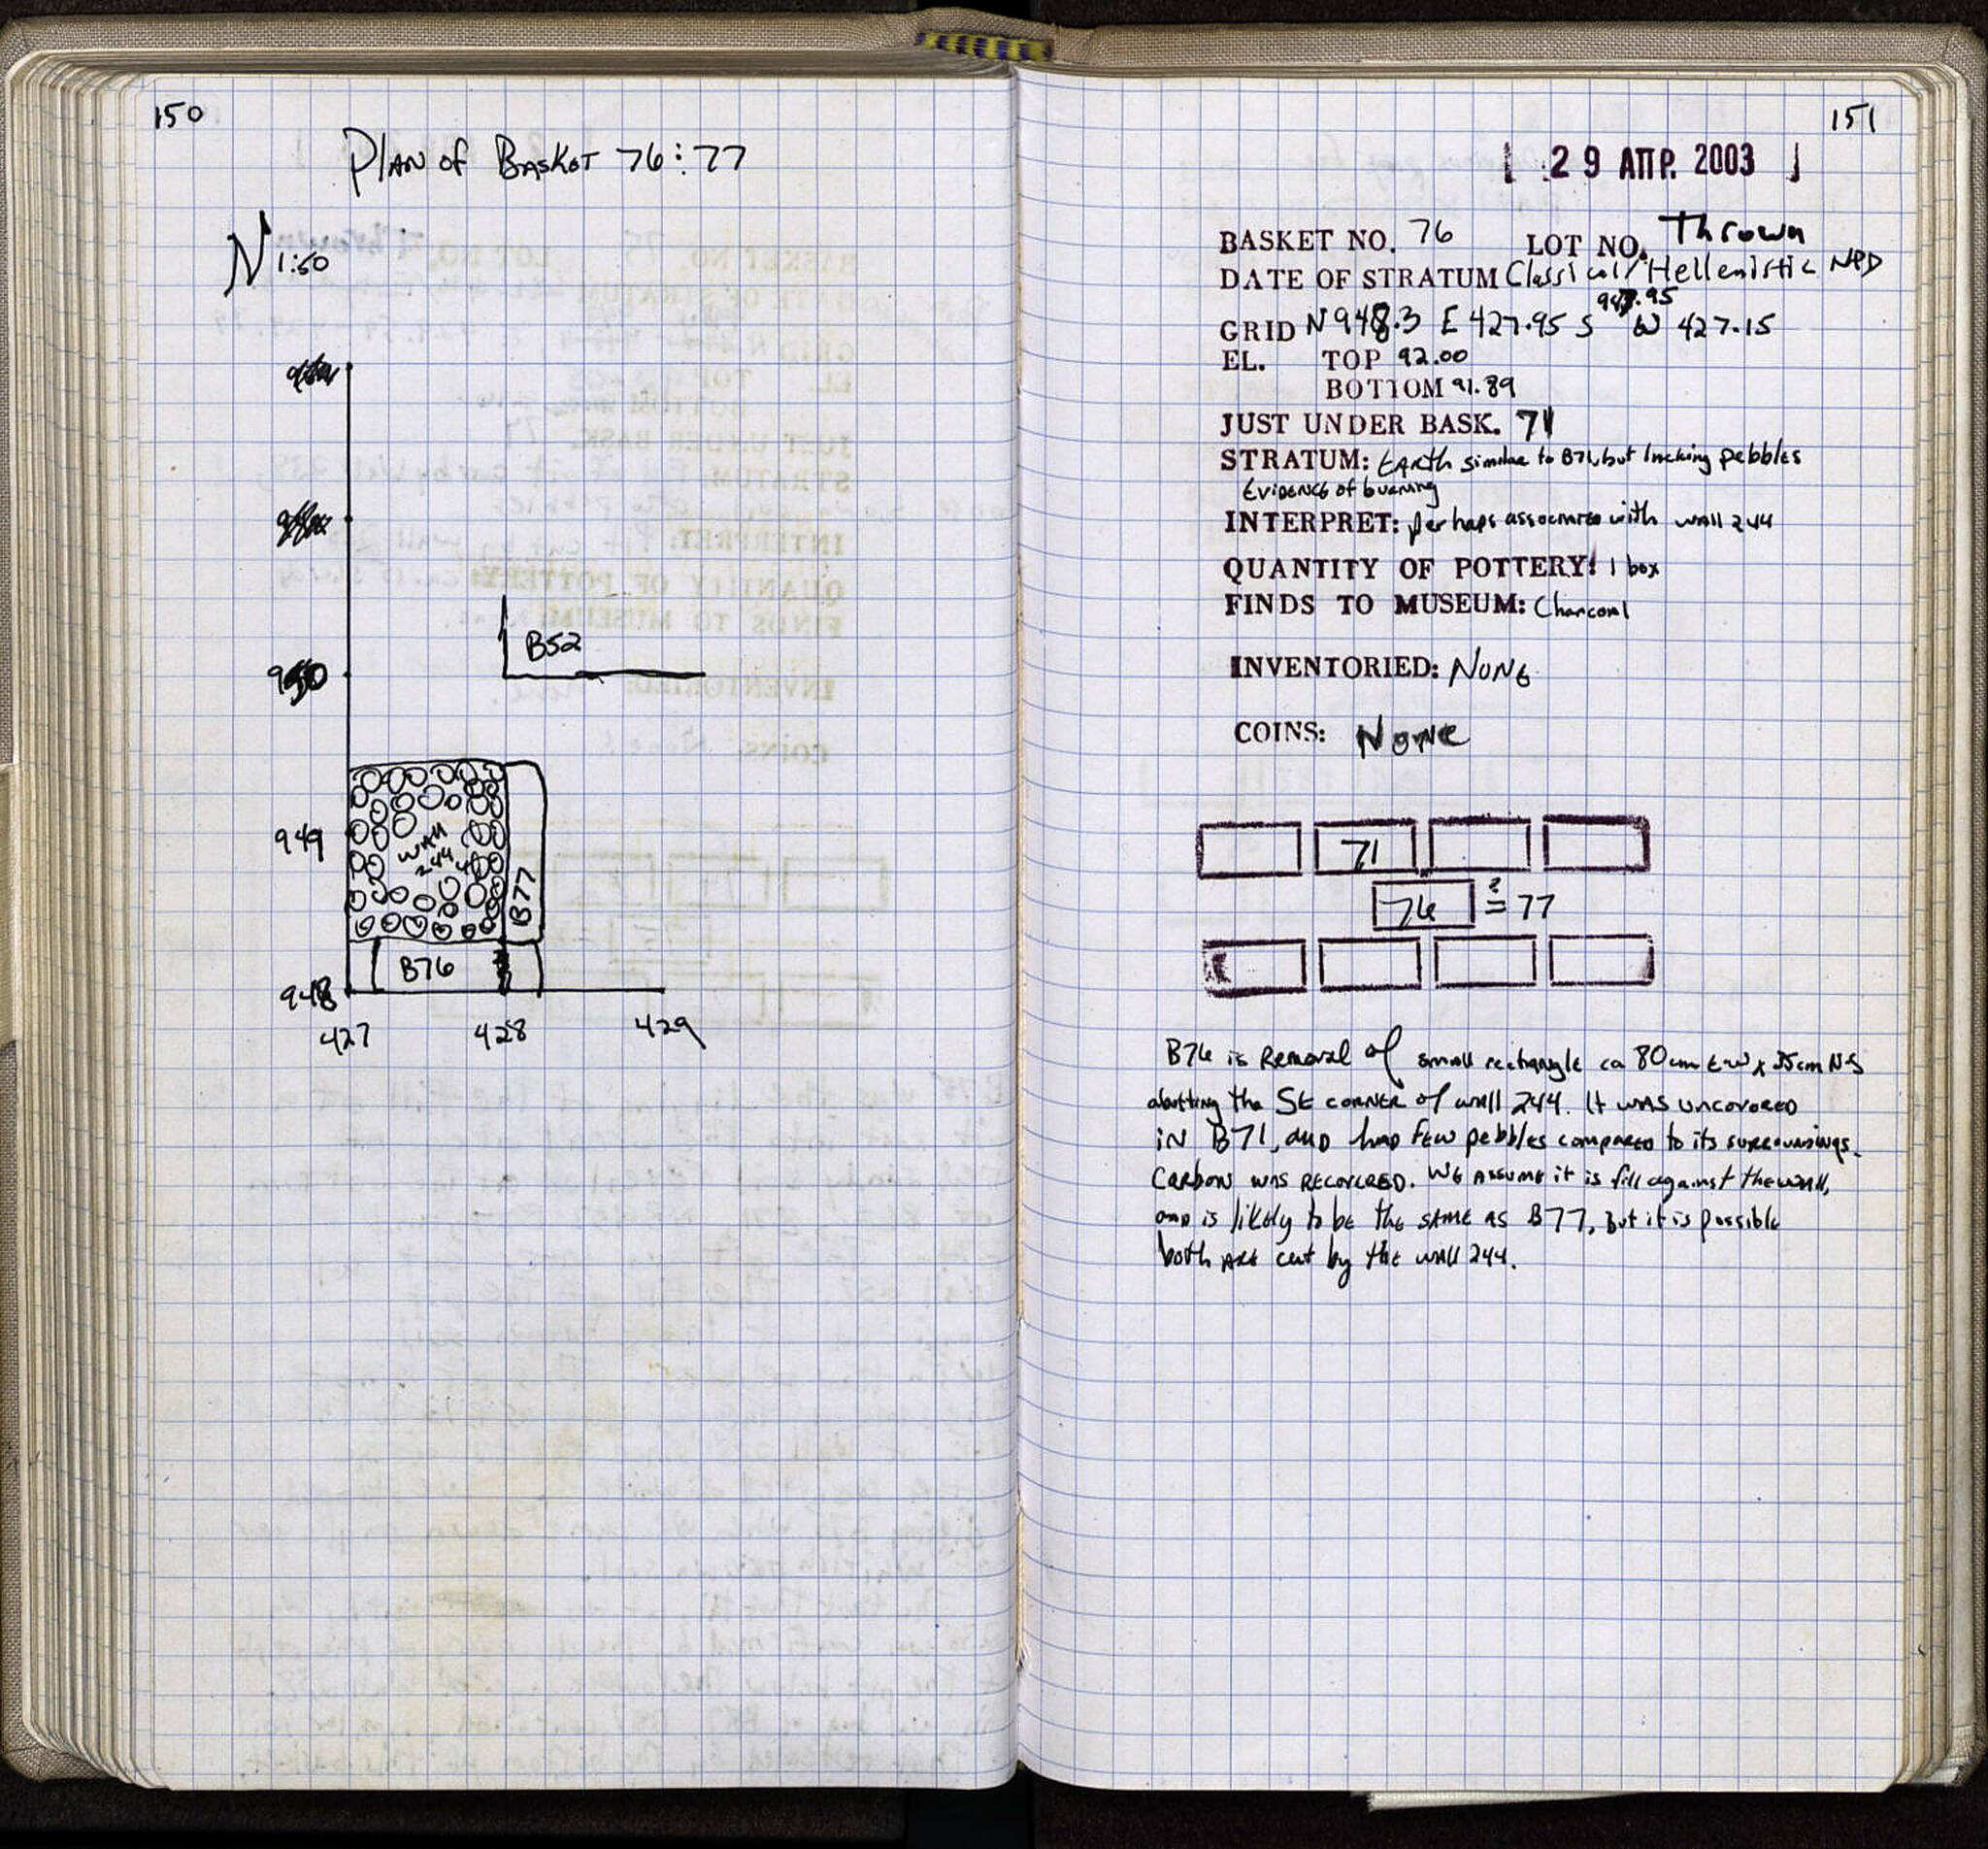 150
Plan of Basket 76:77
N
1:50
950
B52
949
Wall
244
B77
B76
948
427 428 429
151
29 ΑΠΡ. 2003
BASKET NO. 76 LOT NO. Thrown
DATE OF STRATUM Classical/Hellenistic NPD
GRID N 948.3 E 427.95 S 947.95 W 427.15
EL. TOP 92.00
BOTTOM 91.89
JUST UNDER BASK. 71
STRATUM: Earth similar to B71, but lacking pebbles
Evidence of burning
INTERPRET: perhaps associated with wall 244
QUANTITY OF POTTERY: 1 box
FINDS TO MUSEUM: Charcoal
INVENTORIED: None
COINS: None
71
76 ?= 77
B76 is Removal of small rectangle ca 80cm E-W x 35cm N-S
abutting the SE corner of wall 244. It was uncovered
in B71, and had few pebbles compared to its surroundings.
Carbon was recovered. We assume it is fill against the wall,
and is likely to be the same as B77, but it is possible
both are cut by the wall 244.